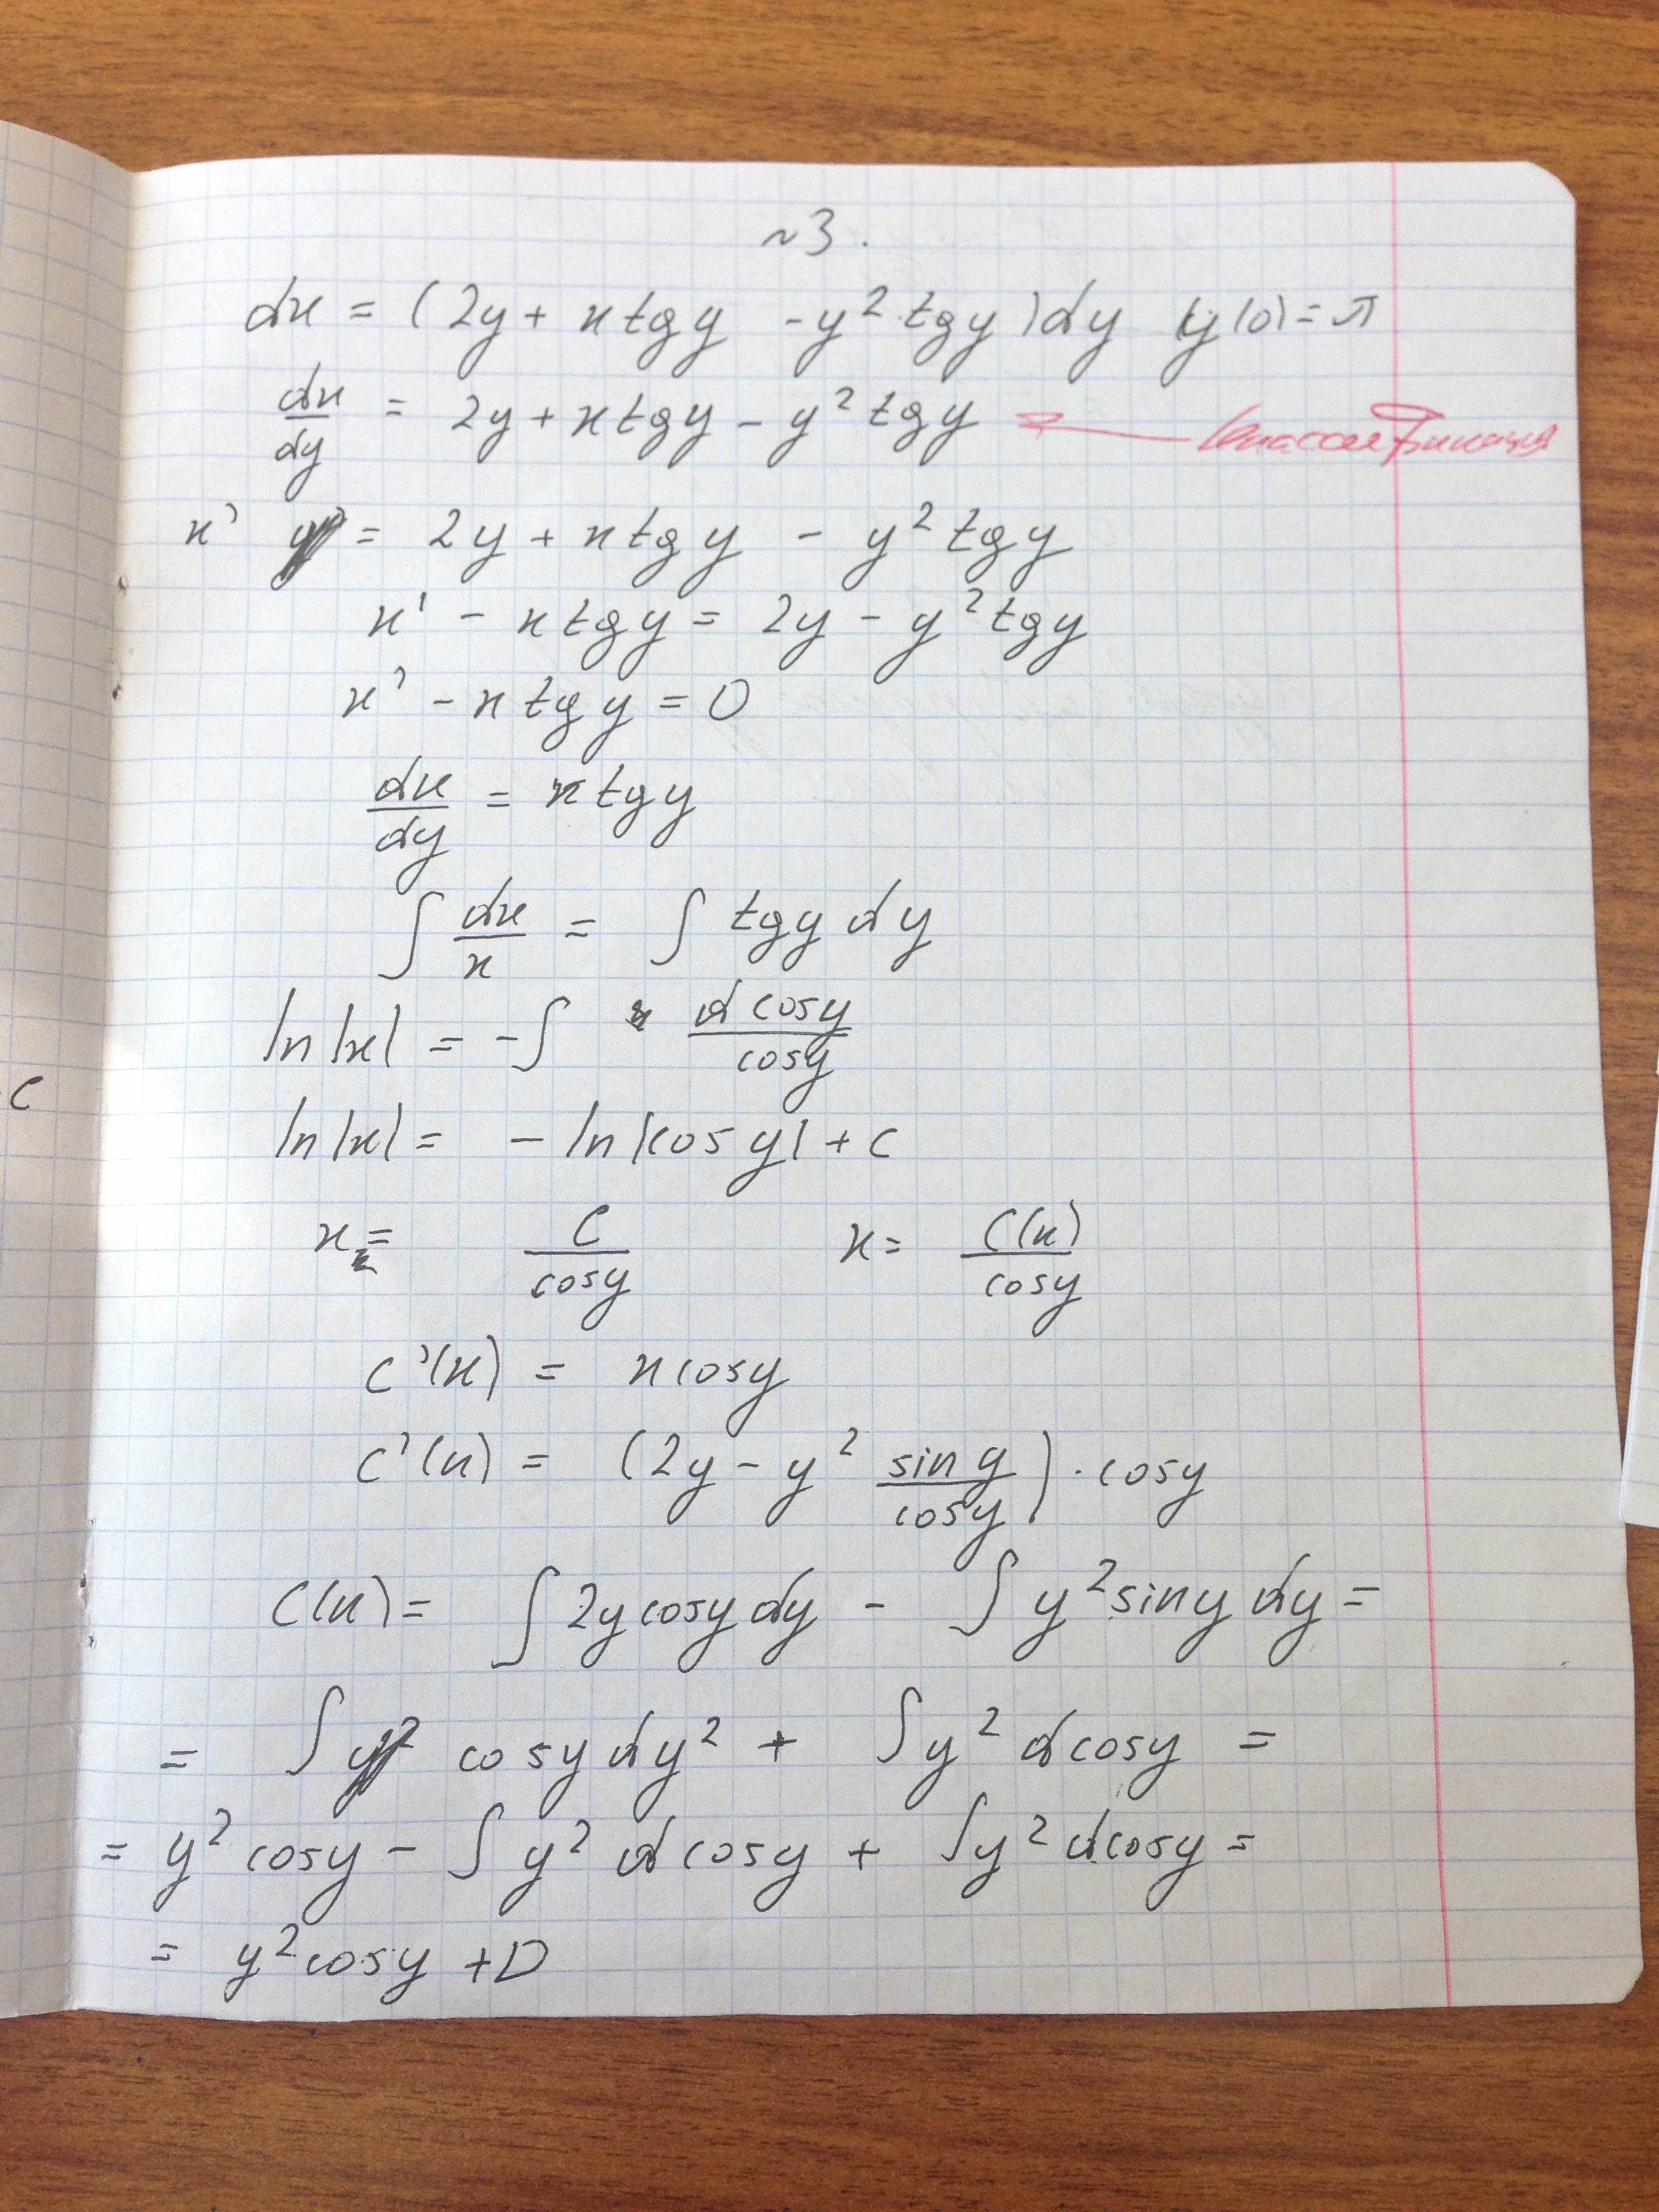 №3.
dx = (2y + x tgy - y² tgy)dy y(0) = π
dx/dy = 2y + x tgy - y² tgy ← Классификация
x' = 2y + x tgy - y² tgy
x' - x tgy = 2y - y² tgy
x' - x tgy = 0
dx/dy = x tgy
∫ dx/x = ∫ tgy dy
ln|x| = -∫ dcosy/cosy
ln|x| = - ln|cosy| + C
x = C/cosy x = C(x)/cosy
C'(x) = x cosy
C'(x) = (2y - y² siny/cosy) · cosy
C
C(x) = ∫ 2y cosy dy - ∫ y² siny dy =
= ∫ cosy dy² + ∫ y² dcosy =
= y² cosy - ∫ y² dcosy + ∫ y² dcosy =
= y² cosy + D